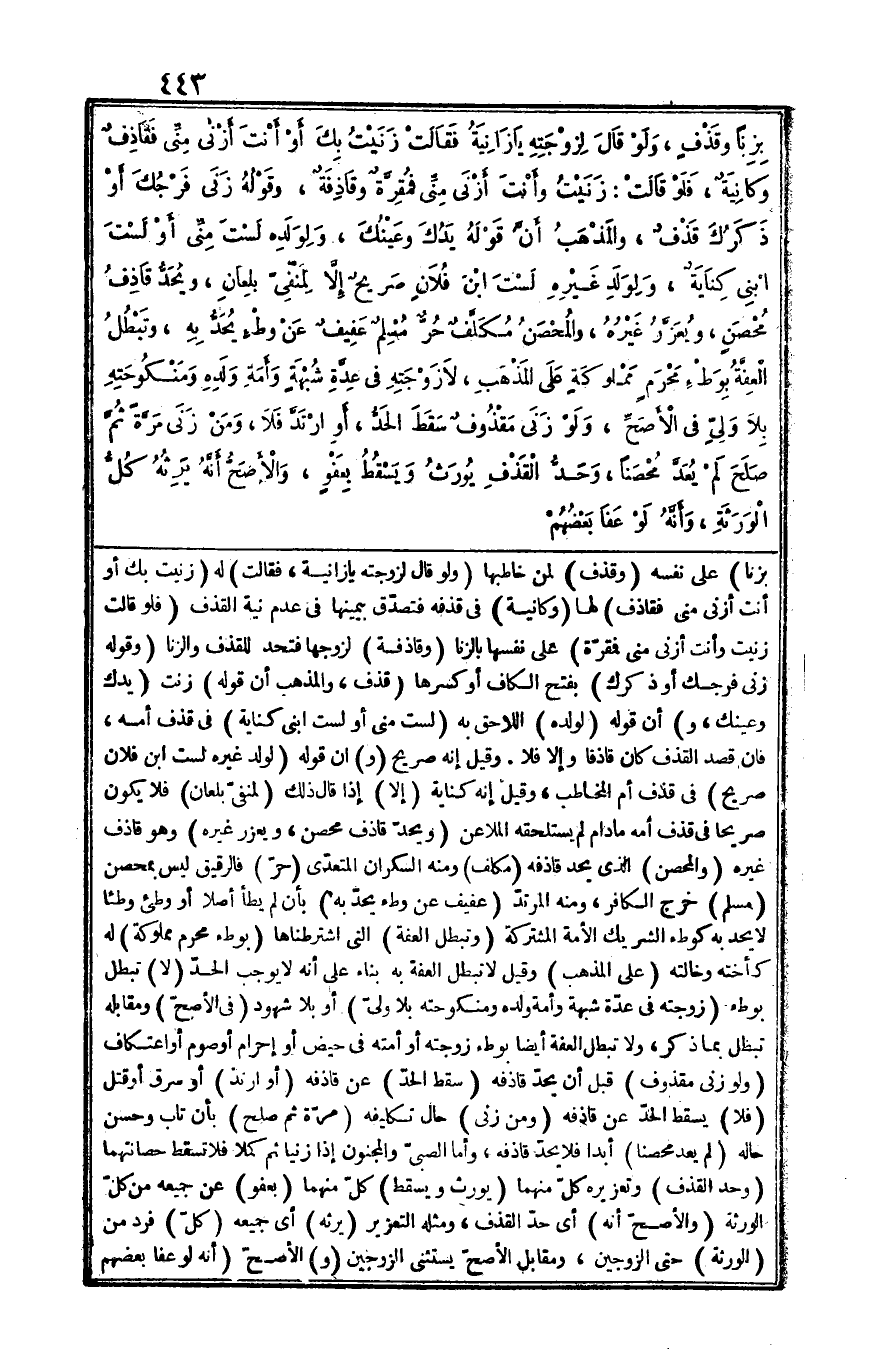 ٤٤٣
بِزِنًا وقَذْفٍ ، وَلَوْ قَالَ لِزَوْجَتِهِ يَازَانِيَةُ فَقَالَتْ زَنَيْتُ بِكَ أَوْ أَنْتَ أَزْنَى مِنِّى فَقَاذِفٌ
وكَانِيَةٌ ، فَلَوْ قَالَتْ : زَنَيْتُ وأَنْتَ أَزْنَى مِنِّى فَمُقِرَّةٌ وقَاذِفَةٌ ، وقَوْلُهُ زَنَى فَرْجُكَ أَوْ
ذَكَرُكَ قَذْفٌ ، والْمَذْهَبُ أَنَّ قَوْلَهُ يَدُكَ وعَيْنُكَ ، وَلِوَلَدِهِ لَسْتَ مِنِّى أَوْ لَسْتَ
ابْنِى كِنَايَةٌ ، وَلِوَلَدِ غَيْرِهِ لَسْتَ ابْنَ فُلَانٍ صَرِيحٌ إِلَّا لِمَنْفِىٍّ بِلِعَانٍ ، ويُحَدُّ قَاذِفُ
مُحْصَنٍ ، ويُعَزَّرُ غَيْرُهُ ، والْمُحْصَنُ مُكَلَّفٌ حُرٌّ مُسْلِمٌ عَفِيفٌ عَنْ وَطْءٍ يُحَدُّ بِهِ ، وتَبْطُلُ
الْعِفَّةُ بِوَطْءِ مَحْرَمٍ مَمْلُوكَةٍ عَلَى الْمَذْهَبِ ، لَا زَوْجَتِهِ فى عِدَّةِ شُبْهَةٍ وَأَمَةِ وَلَدِهِ وَمَنْكُوحَتِهِ
بِلَا وَلِىٍّ فى الْأَصَحِّ ، وَلَوْ زَنَى مَقْذُوفٌ سَقَطَ الْحَدُّ ، أَوِ ارْتَدَّ فَلَا ، وَمَنْ زَنَى مَرَّةً ثُمَّ
صَلَحَ لَمْ يُعَدْ مُحْصَنًا ، وَحَدُّ الْقَذْفِ يُورَثُ وَيَسْقُطُ بِعَفْوٍ ، وَالْأَصَحُّ أَنَّهُ يَرِثُهُ كُلُّ
الْوَرَثَةِ ، وَأَنَّهُ لَوْ عَفَا بَعْضُهُمْ
بزنا ) على نفسه ( وقذف ) لمن خاطبها ( ولو قال لزوجته يازانية ، فقالت ) له ( زنيت بك أو
أنت أزنى منى فقاذف ) لها ( وكانية ) فى قذفه فتصدّق بيمينها فى عدم نية القذف ( فلو قالت
زنيت وأنت أزنى منى فمقرّة ) على نفسها بالزنا ( وقاذفة ) لزوجها فتحد للقذف والزنا ( وقوله
زنى فرجك أو ذكرك ) بفتح الكاف أو كسرها ( قذف ، والمذهب أن قوله ) زنت ( يدك
وعينك ، و ) أن قوله ( لولده ) اللاحق به ( لست منى أو لست ابنى كناية ) فى قذف أمه ،
فان قصد القذف كان قاذفا وإلا فلا . وقيل إنه صريح ( و ) ان قوله ( لولد غيره لست ابن فلان
صريح ) فى قذف أم المخاطب ، وقيل إنه كناية ( إلا ) إذا قال ذلك ( لمنفىّ بلعان ) فلا يكون
صريحا فى قذف أمه مادام لم يستلحقه الملاعن ( ويحدّ قاذف محصن ، ويعزر غيره ) وهو قاذف
غيره ( والمحصن ) الذى يحد قاذفه ( مكلف ) ومنه السكران المتعدّى ( حرّ ) فالرقيق ليس بمحصن
( مسلم ) خرج الكافر ، ومنه المرتدّ ( عفيف عن وطء يحدّ به ) بأن لم يطأ أصلا أو وطئ وطئا
لايحد به كوطء الشريك الأمة المشتركة ( وتبطل العفة ) التى اشترطناها ( بوطء محرم مملوكة ) له
كأخته وخالته ( على المذهب ) وقيل لاتبطل العفة به بناء على أنه لايوجب الحدّ ( لا ) تبطل
بوطء ( زوجته فى عدّة شبهة وأمة ولده ومنكوحته بلا ولىّ ) أو بلا شهود ( فى الأصحّ ) ومقابله
تبطل بما ذكر ، ولا تبطل العفة أيضا بوطء زوجته أو أمته فى حيض أو إحرام أو صوم أو اعتكاف
( ولو زنى مقذوف ) قبل أن يحدّ قاذفه ( سقط الحدّ ) عن قاذفه ( أو ارتدّ ) أو سرق أوقتل
( فلا ) يسقط الحدّ عن قاذفه ( ومن زنى ) حال تكليفه ( مرّة ثم صلح ) بأن تاب وحسن
حاله ( لم يعد محصنا ) أبدا فلا يحدّ قاذفه ، وأما الصبىّ والمجنون إذا زنيا ثم كملا فلا تسقط حصانتهما
( وحد القذف ) وتعزيره كلّ منهما ( يورث و يسقط ) كلّ منهما ( بعفو ) عن جميعه من كلّ
الورثة ( والأصحّ أنه ) أى حدّ القذف ، ومثله التعزير ( يرثه ) أى جميعه ( كلّ ) فرد من
( الورثة ) حتى الزوجين ، ومقابل الأصحّ يستثنى الزوجين ( و ) الأصحّ ( أنه لو عفا بعضهم